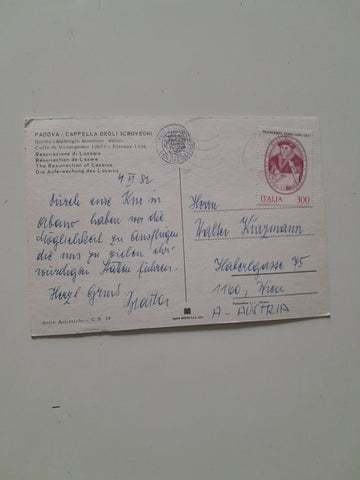 PADOVA - CAPPELLA DEGLI SCROVEGNI
Giotto (Ambrogio Bondone detto)
Colle di Vespignano 1267? - Firenze 1336
Resurrezione di Lazzaro
Résurrection de Lazare
The Resurrection of Lazarus
Die Auferweckung des Lazarus
4 VI 82
Durch eine Kur in
Abano haben wir die
Möglichkeit zu Ausflügen
die uns zu vielen ehr-
würdigen Stätten führen.
Herzl Gruß
Serie Artistiche - C.S. 24
ITALIA 300
Herrn
Walter Kurzmann
Haberlgasse 75
1160, Wien
A - AUSTRIA